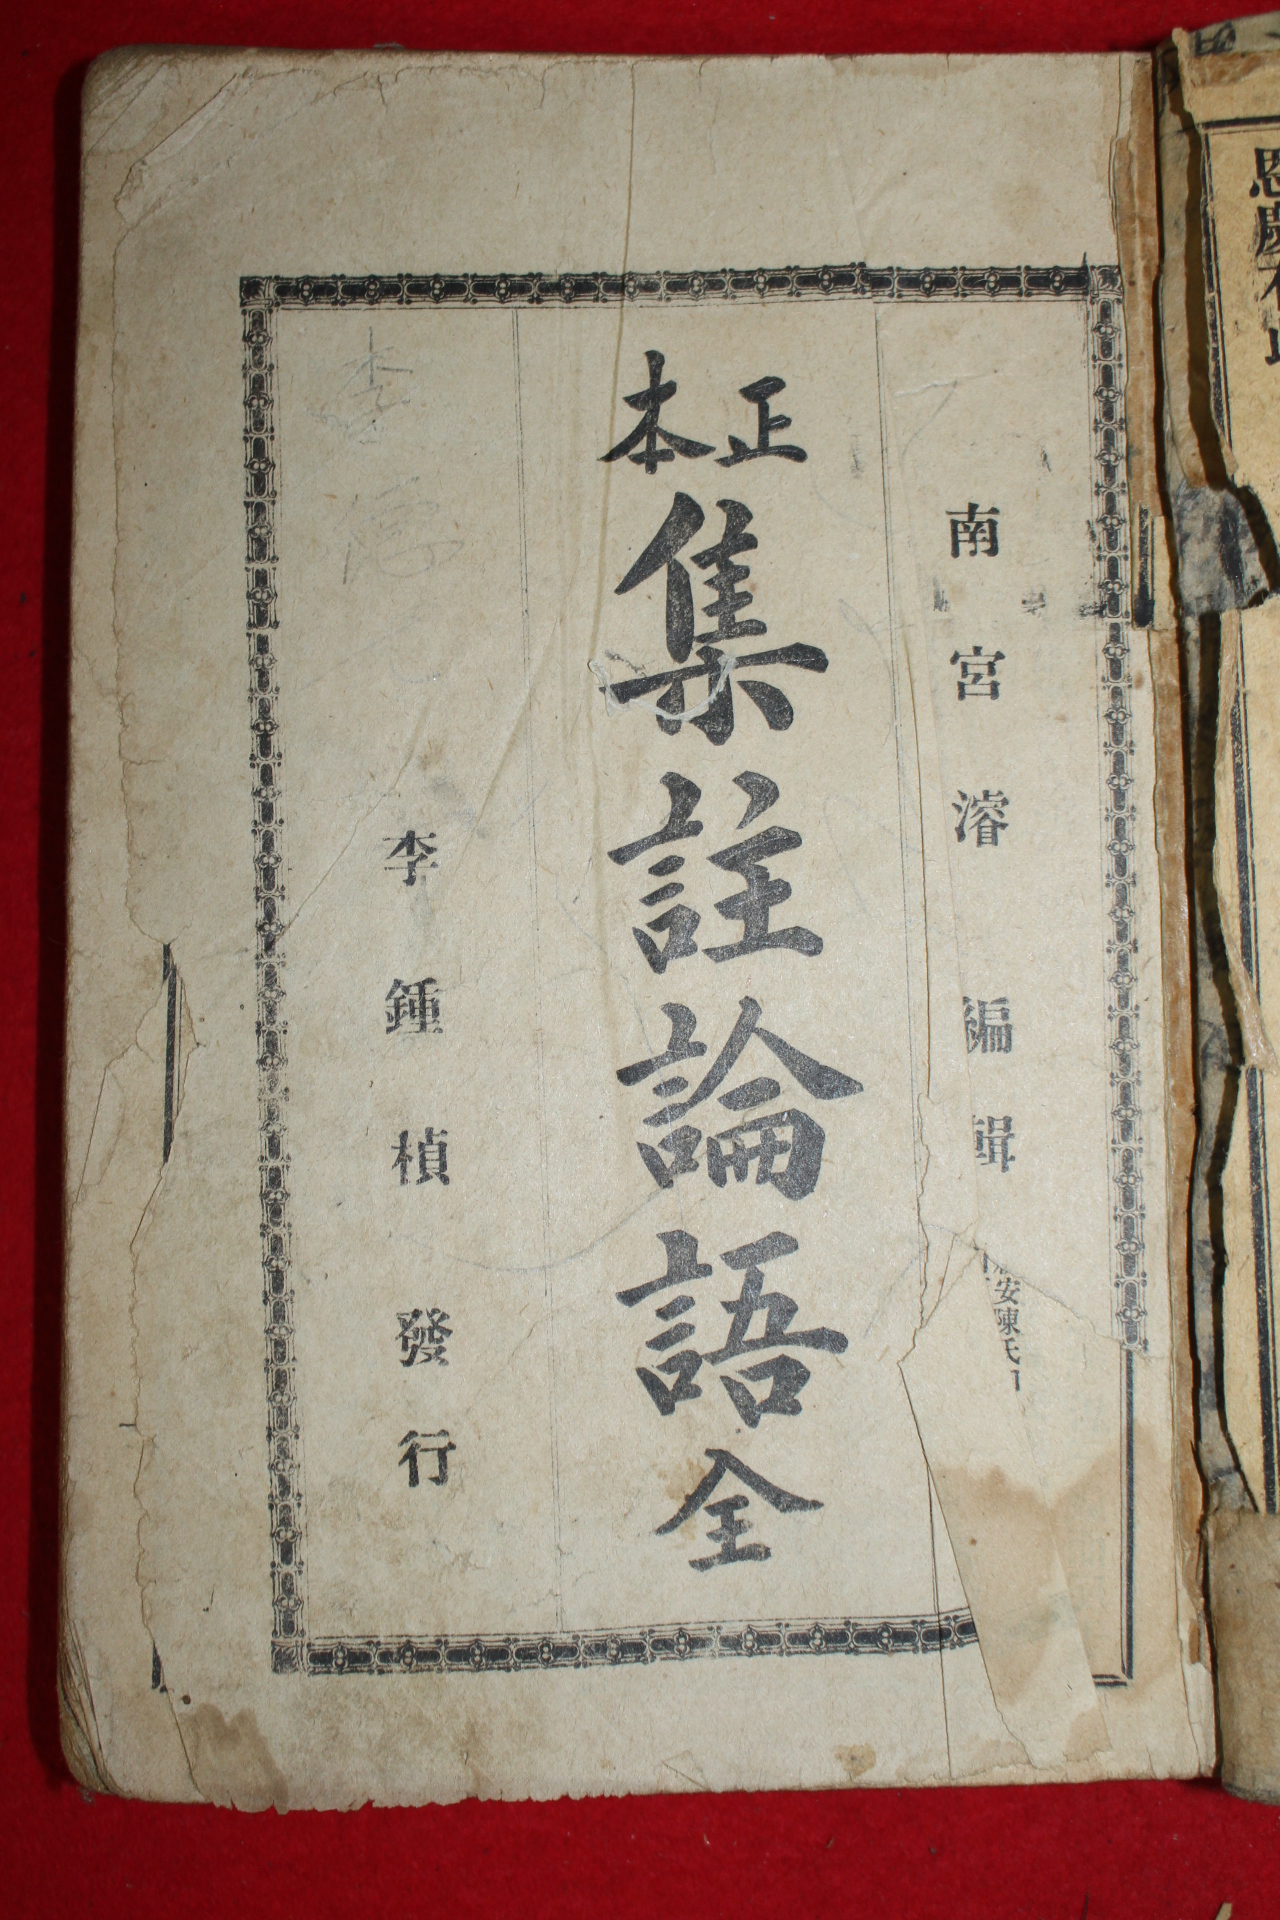 南宮濬編輯
正本集註論語全
李鍾楨發行
安陳氏